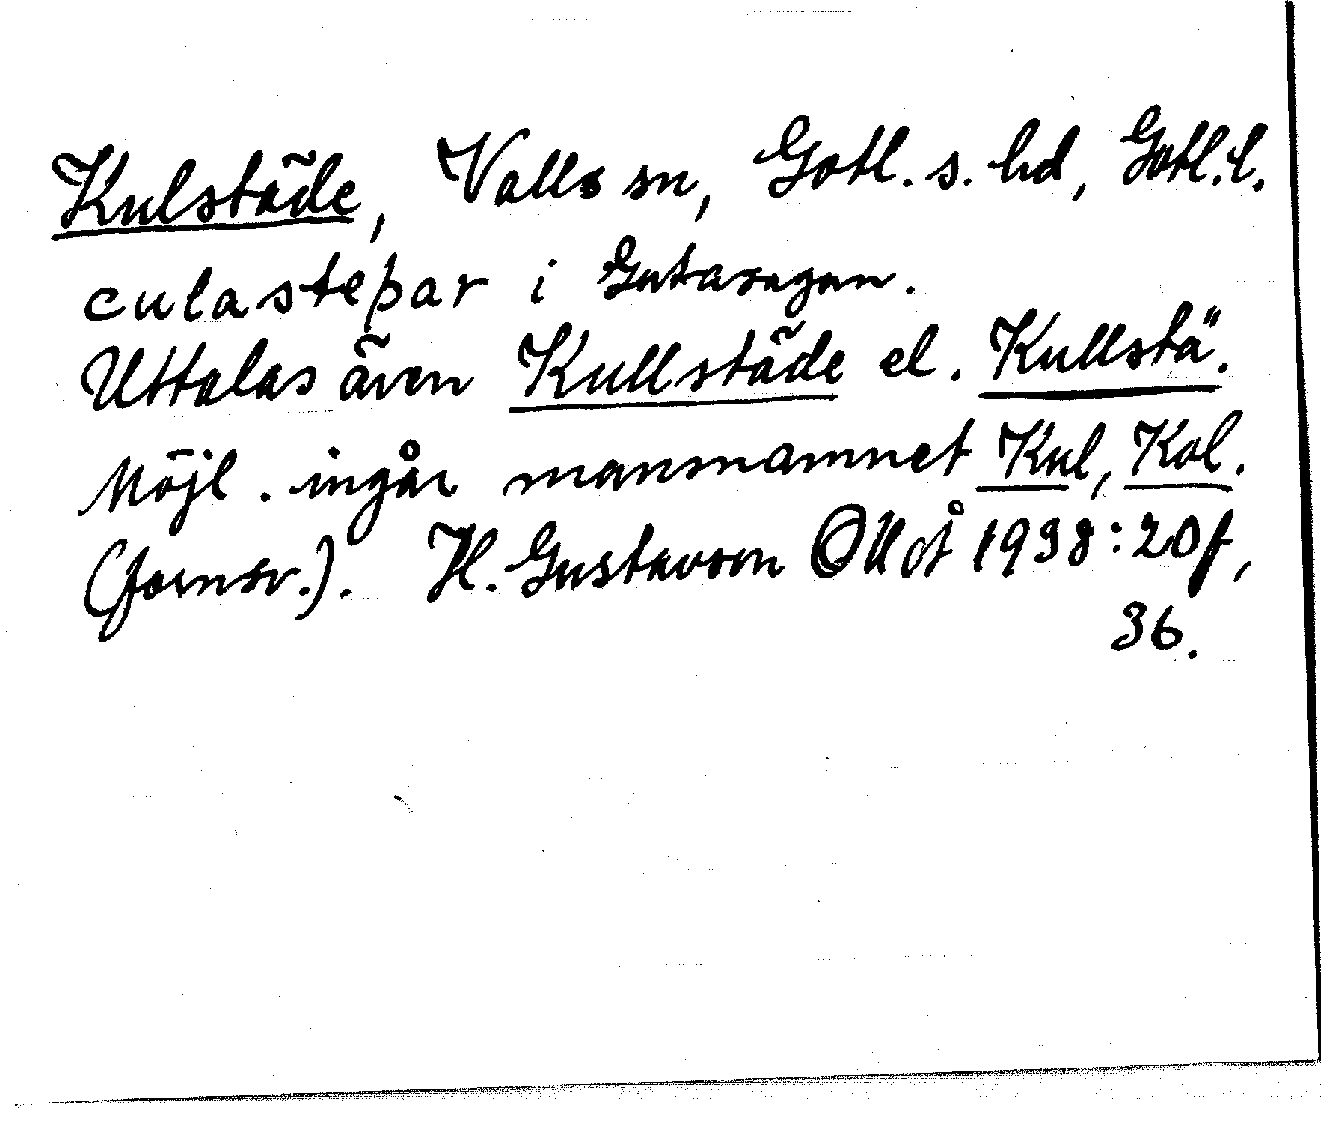 Kulstäde, Valls sn, Gotl. s. hd, Gotl. l.
culasteþar i Gutasagan.
Uttalas även Kullstäde el. Kullstä.
Möjl. ingår mansnamnet Kul, Kol.
(fornsv.). H. Gustavson OUoÅ 1938:20f,
36.